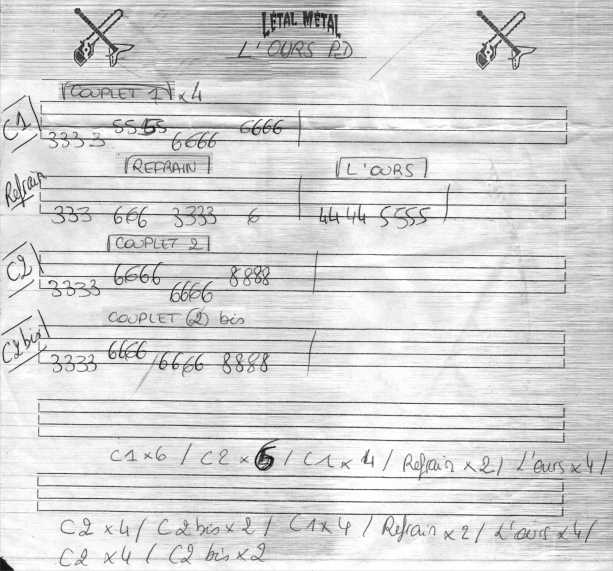 LÉTAL MÉTAL
L'OURS PD
COUPLET 1 x4
C1
5555 6666
3333 6666
Refrain
REFRAIN L'OURS
333 666 3333 6 4444 5555
COUPLET 2
C2
6666 8888
3333 6666
COUPLET (2) bis
C2 bis
6666
3333 6666 8888
C1 x6 / C2 x 6 / C1 x 4 / Refrain x2 / L'ours x4 /
C2 x4 / C2 bis x2 / C1 x4 / Refrain x2 / L'ours x4 /
C2 x4 / C2 bis x2